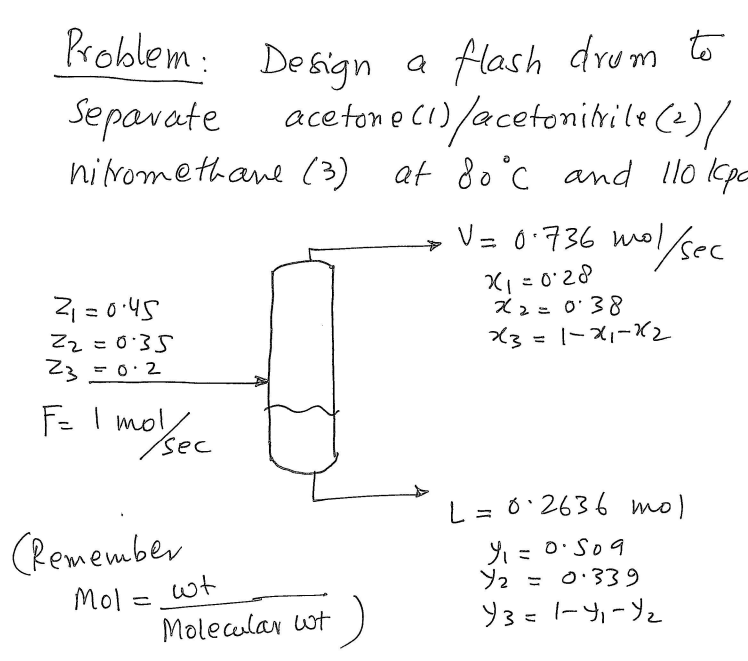 Problem: Design a flash drum to
separate acetone(1)/acetonitrile(2)/
nitromethane (3) at 80°C and 110 kpa
V = 0.736 mol/sec
x₁ = 0.28
x₂ = 0.38
x₃ = 1-x₁-x₂
Z₁ = 0.45
Z₂ = 0.35
Z₃ = 0.2
F = 1 mol/sec
L = 0.2636 mol
y₁ = 0.509
y₂ = 0.339
y₃ = 1-y₁-y₂
(Remember
Mol = wt / Molecular wt)